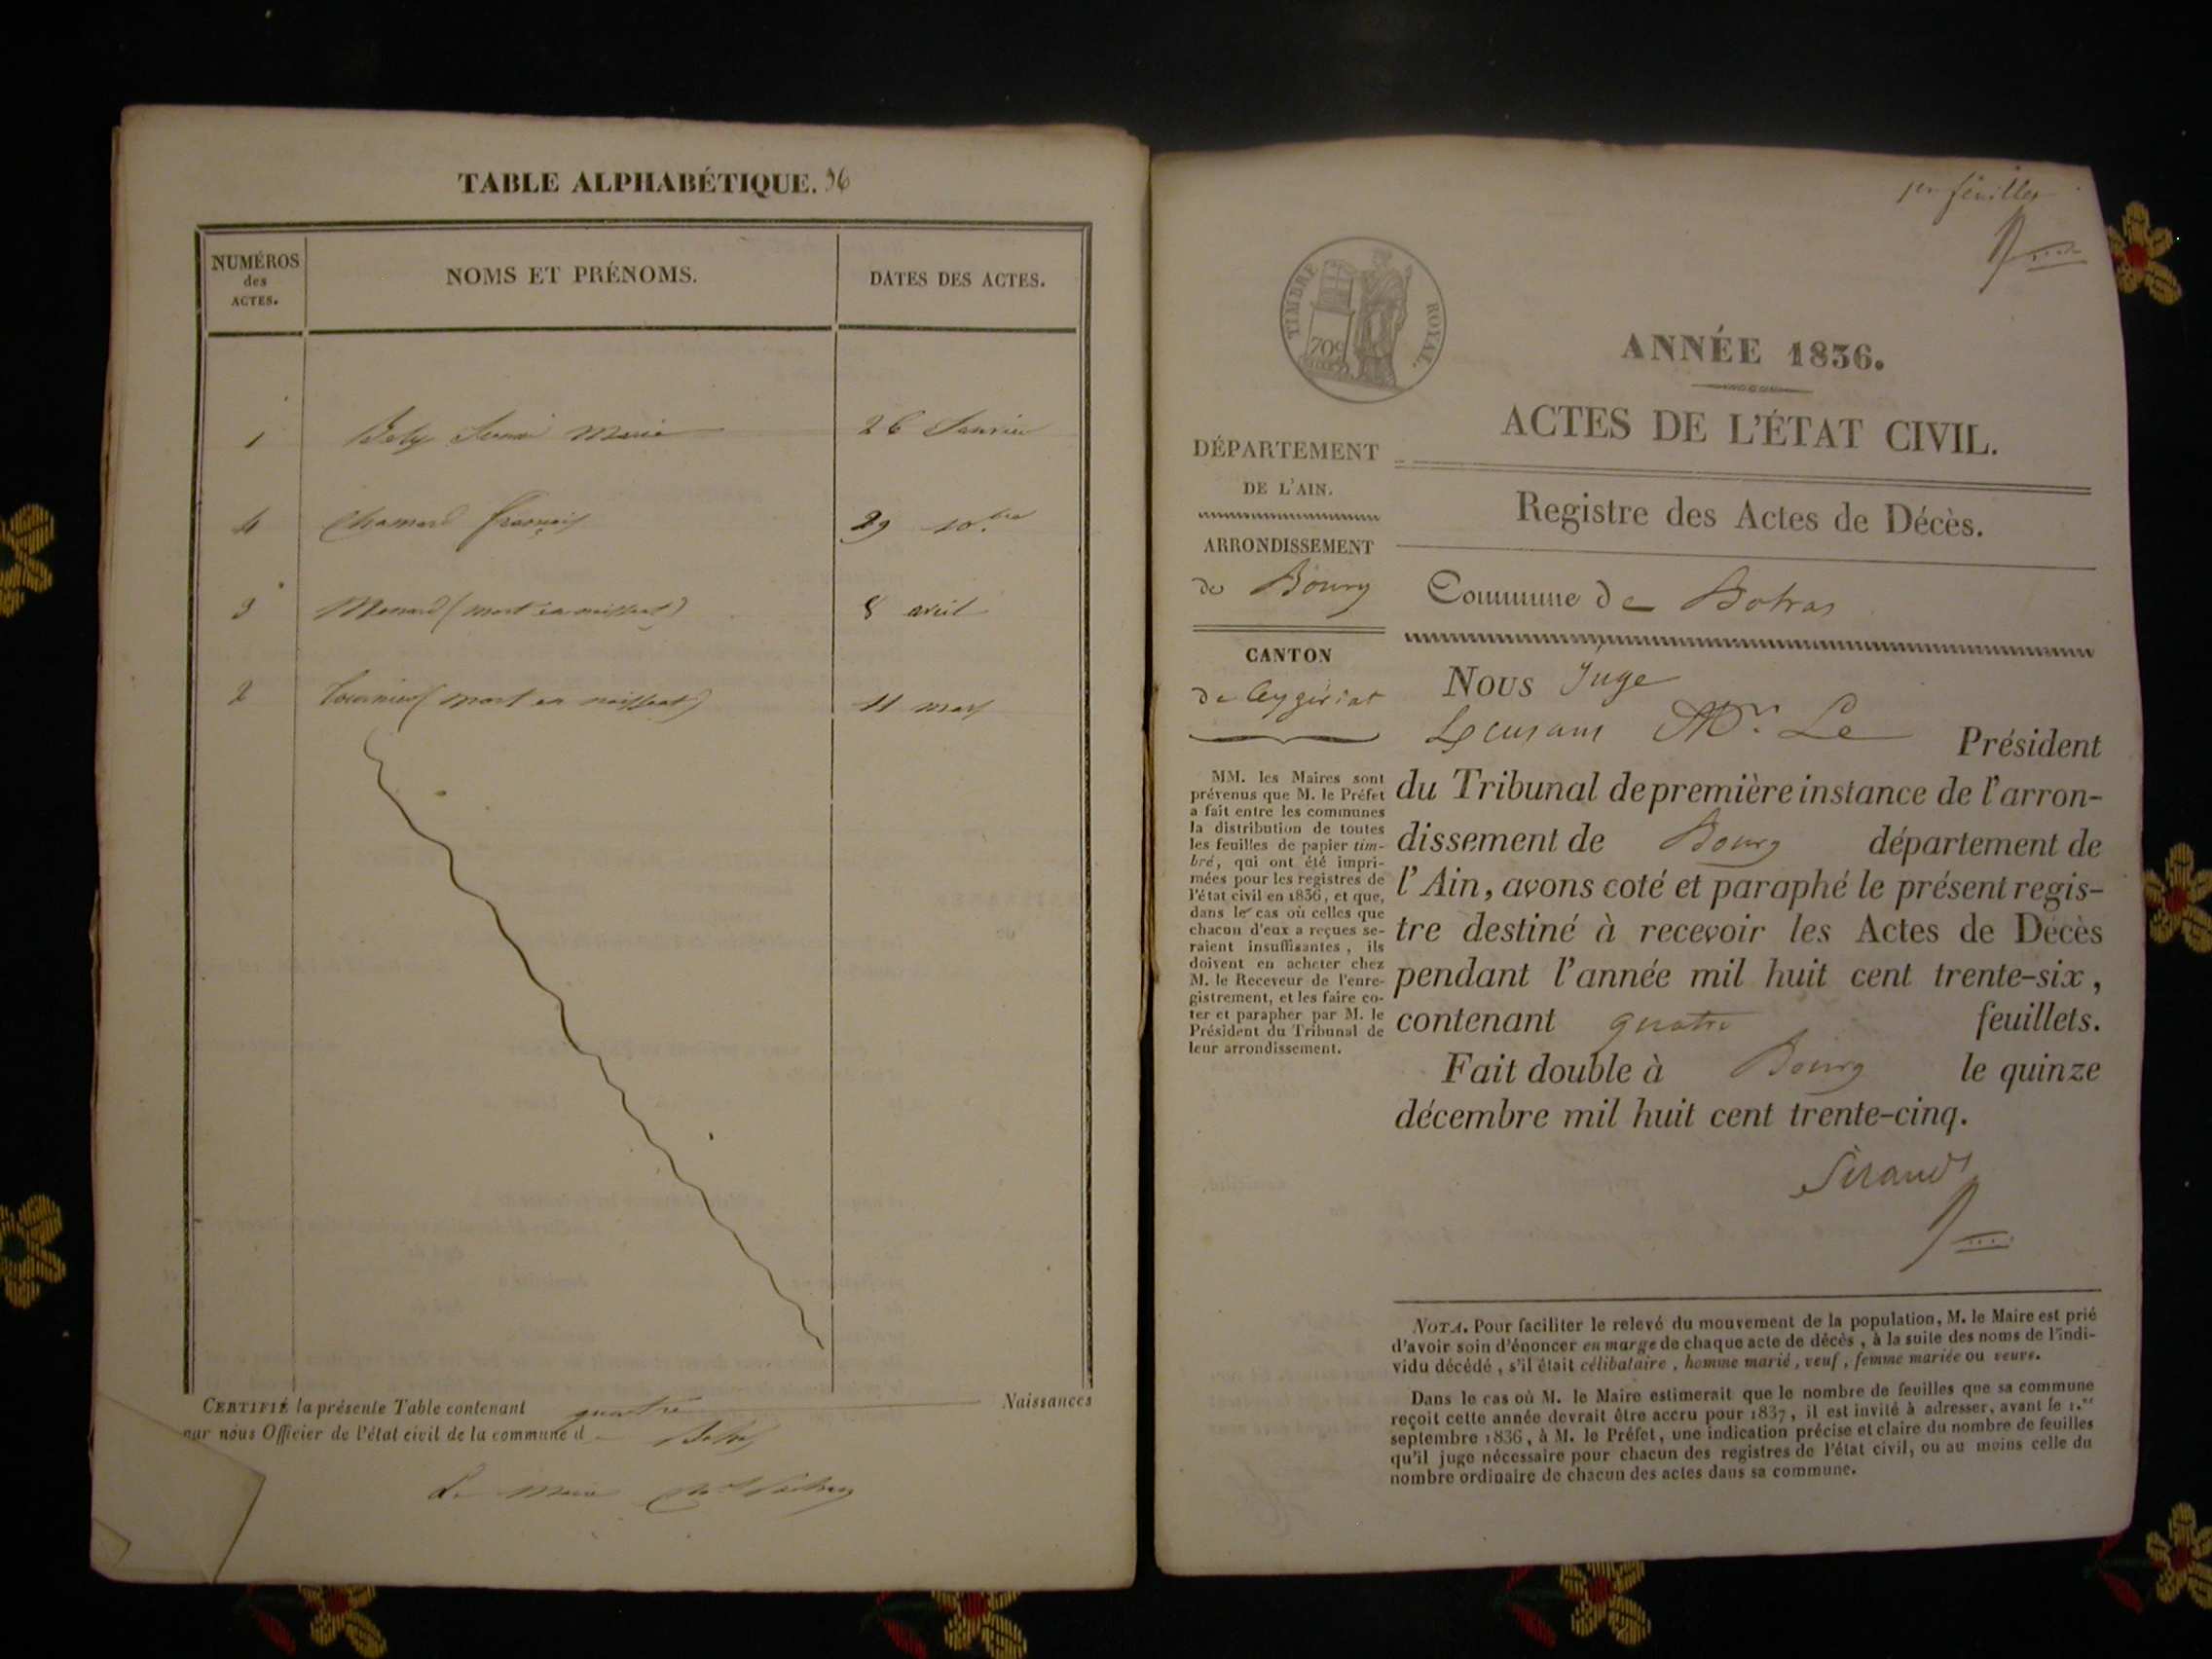 TABLE ALPHABÉTIQUE. 36
NUMÉROS
des
ACTES.
NOMS ET PRÉNOMS.
DATES DES ACTES.
1 Marie 26 Janvier
4 Chanard françois 29 10.bre
3 Monard (mort en naissant) 8 avril
2 (mort en naissant) 11 mars
CERTIFIÉ la présente Table contenant quatre Naissances
par nous Officier de l'état civil de la commune d
Le Maire
1er feuillet
TIMBRE ROYAL.
70c
ANNÉE 1836.
ACTES DE L'ÉTAT CIVIL.
Registre des Actes de Décès.
Commune de Bohas
DÉPARTEMENT
DE L'AIN.
ARRONDISSEMENT
de Bourg
CANTON
de Ceyzériat
MM. les Maires sont
prévenus que M. le Préfet
a fait entre les communes
la distribution de toutes
les feuilles de papier tim-
bré, qui ont été impri-
mées pour les registres de
l'état civil en 1836, et que,
dans le cas où celles que
chacun d'eux a reçues se-
raient insuffisantes, ils
doivent en acheter chez
M. le Receveur de l'enre-
gistrement, et les faire co-
ter et parapher par M. le
Président du Tribunal de
leur arrondissement.
NOUS Juge
Mr. Le Président
du Tribunal de première instance de l'arron-
dissement de Bourg département de
l'Ain, avons coté et paraphé le présent regis-
tre destiné à recevoir les Actes de Décès
pendant l'année mil huit cent trente-six,
contenant quatre feuillets.
Fait double à Bourg le quinze
décembre mil huit cent trente-cinq.
Sirand
NOTA. Pour faciliter le relevé du mouvement de la population, M. le Maire est prié
d'avoir soin d'énoncer en marge de chaque acte de décès, à la suite des noms de l'indi-
vidu décédé, s'il était célibataire, homme marié, veuf, femme mariée ou veuve.
Dans le cas où M. le Maire estimerait que le nombre de feuilles que sa commune
reçoit cette année devrait être accru pour 1837, il est invité à adresser, avant le 1.er
septembre 1836, à M. le Préfet, une indication précise et claire du nombre de feuilles
qu'il juge nécessaire pour chacun des registres de l'état civil, ou au moins celle du
nombre ordinaire de chacun des actes dans sa commune.